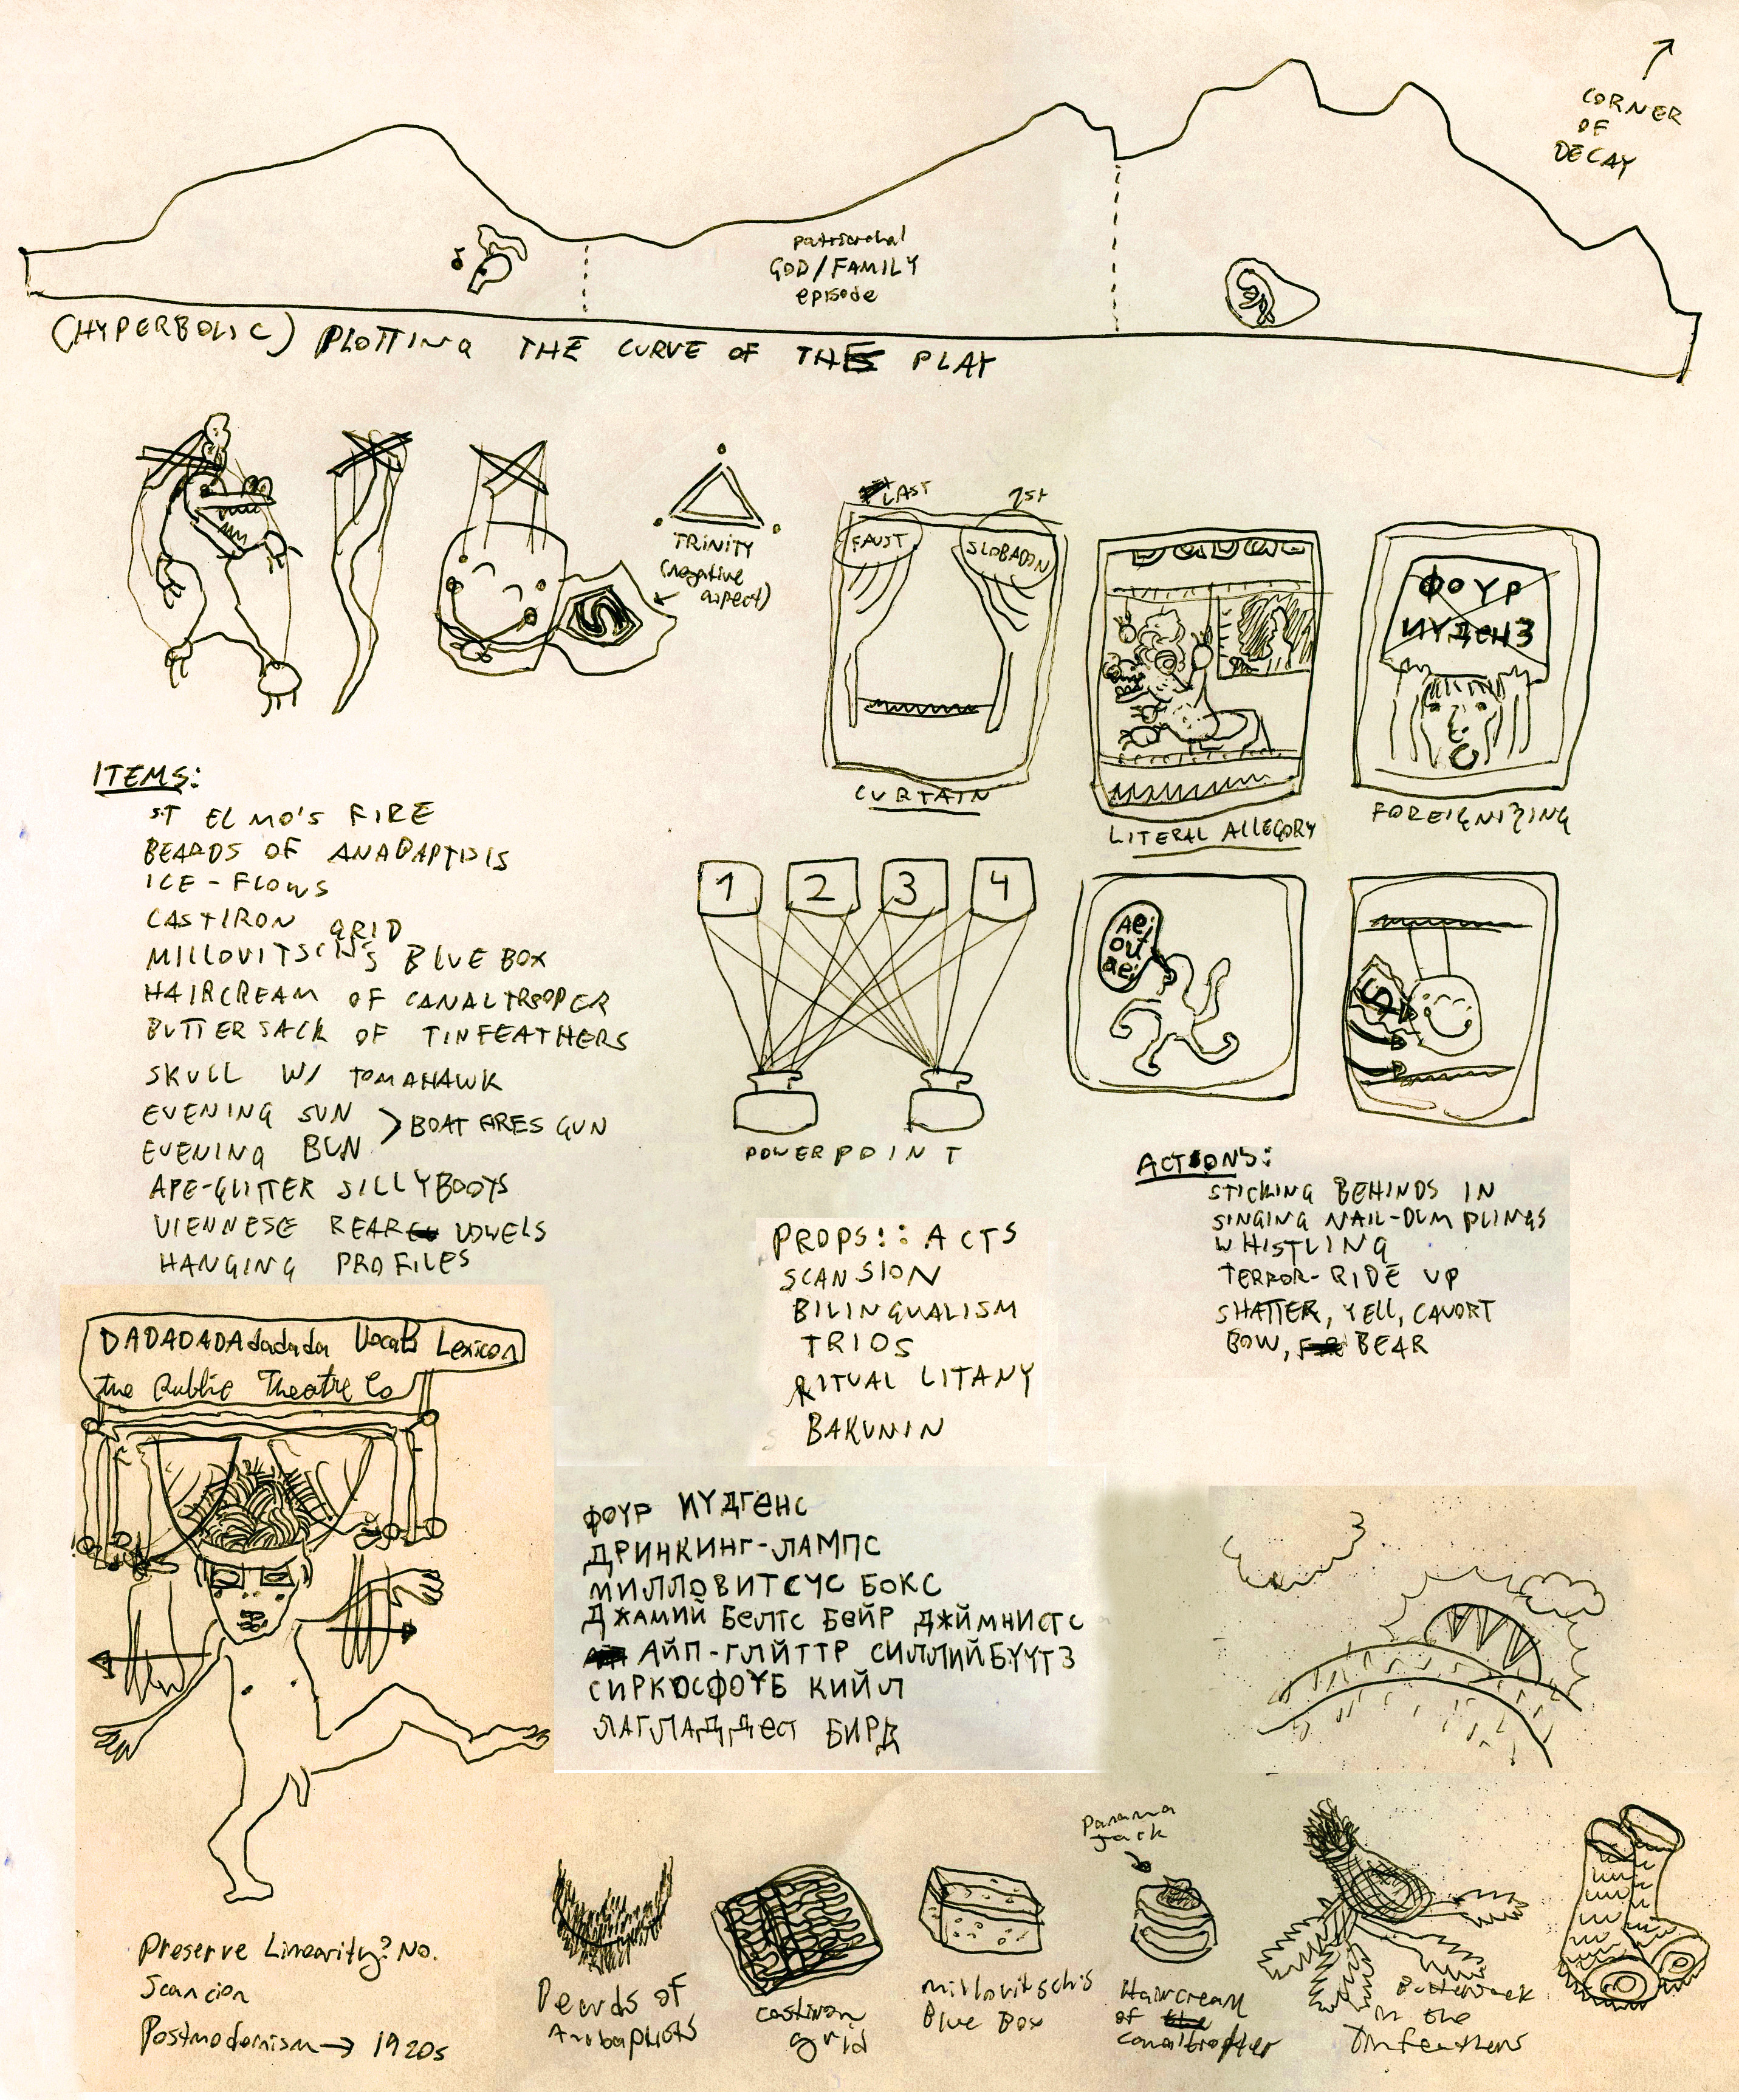 CORNER
OF
DECAY
patriarchal
GOD/FAMILY
episode
(HYPERBOLIC) PLOTTING THE CURVE OF THE PLAY
TRINITY
(negative
aspect)
LAST
1st
FAUST
SLOBADDN
CURTAIN
LITERAL ALLEGORY
ФОУР
ИУДЕНЗ
FOREIGNIZING
ITEMS:
ST ELMO'S FIRE
BEARDS OF ANABAPTISTS
ICE-FLOWS
CASTIRON GRID
MILLOVITSCH'S BLUE BOX
HAIRCREAM OF CANALTROOPER
BUTTERSACK OF TINFEATHERS
SKULL W/ TOMAHAWK
EVENING SUN
EVENING BUN
> BOAT FIRES GUN
APE-GLITTER SILLYBOOTS
VIENNESE REAR VOWELS
HANGING PROFILES
1 2 3 4
POWERPOINT
Aei
ou
aei
S
ACTIONS:
STICKING BEHINDS IN
SINGING NAIL-DUMPLINGS
WHISTLING
TERROR-RIDE UP
SHATTER, YELL, CAVORT
BOW, BEAR
PROPS:: ACTS
SCANSION
BILINGUALISM
TRIOS
RITUAL LITANY
BAKUNIN
DADADADAdadada Vocab Lexicon
the Public Theatre Co
ФОУР ИУДГЕНС
ДРИНКИНГ-ЛАМПС
МИЛЛОВИТСУС БОКС
ДЖАМИЙ БЕЛТС БЕЙР ДЖЙМНИСТС
АЙП-ГЛЙТТР СИЛЛИЙБУУТЗ
СИРКОСФОУБ КИЙЛ
ЛАГЛАДДЕСТ БИРД
Preserve Linearity? No.
Scancion
Postmodernism → 1920s
Beards of
Anabaptists
castiron
grid
Millovitsch's
Blue Box
Panama
Jack
Haircream
of
canaltropper
Buttersack
in the
Tinfeathers